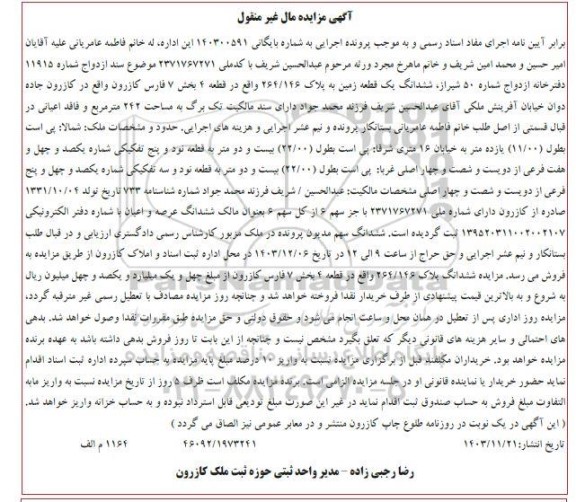 آگهی مزایده مال غیر منقول
برابر آیین نامه اجرای مفاد اسناد رسمی و به موجب پرونده اجرایی به شماره بایگانی ۱۴۰۳۰۰۵۹۱ این اداره، له خانم فاطمه عامریانی علیه آقایان
امیر حسین و محمد امین شریف و خانم ماهرخ مجرد ورثه مرحوم عبدالحسین شریف با کدملی ۲۳۷۱۷۶۷۲۷۱ موضوع سند ازدواج شماره ۱۱۹۱۵
دفترخانه ازدواج شماره ۵۰ شیراز، ششدانگ یک قطعه زمین به پلاک ۲۶۴/۱۴۶ واقع در قطعه ۴ بخش ۷ فارس کازرون واقع در کازرون جاده
دوان خیابان آفرینش ملکی آقای عبدالحسین شریف فرزند محمد جواد دارای سند مالکیت تک برگ به مساحت ۲۴۲ مترمربع و فاقد اعیانی در
قبال قسمتی از اصل طلب خانم فاطمه عامریانی بستانکار پرونده و نیم عشر اجرایی و هزینه های اجرایی. حدود و مشخصات ملک: شمالا: پی است
بطول (۱۱/۰۰) یازده متر به خیابان ۱۶ متری شرقا: پی است بطول (۲۲/۰۰) بیست و دو متر به قطعه نود و پنج تفکیکی شماره یکصد و چهل و
هفت فرعی از دویست و شصت و چهار اصلی غربا: پی است بطول (۲۲/۰۰) بیست و دو متر به قطعه نود و سه تفکیکی شماره یکصد و چهل و پنج
فرعی از دویست و شصت و چهار اصلی مشخصات مالکیت: عبدالحسین / شریف فرزند محمد جواد شماره شناسنامه ۷۳۳ تاریخ تولد ۱۳۳۱/۱۰/۰۴
صادره از کازرون دارای شماره ملی ۲۳۷۱۷۶۷۲۷۱ با جز سهم ۶ از کل سهم ۶ بعنوان مالک ششدانگ عرصه و اعیان با شماره دفتر الکترونیکی
۱۳۹۵۲۰۳۱۱۰۰۲۰۰۲۱۰۷ ثبت گردیده است. ششدانگ سهم مدیون پرونده در ملک مزبور کارشناس رسمی دادگستری ارزیابی و در قبال طلب
بستانکار و نیم عشر اجرایی و حق حراج از ساعت ۹ الی ۱۲ در تاریخ ۱۴۰۳/۱۲/۰۶ در محل اداره ثبت اسناد و املاک کازرون از طریق مزایده به
فروش می رسد. مزایده ششدانگ پلاک ۲۶۴/۱۴۶ واقع در قطعه ۴ بخش ۷ فارس کازرون از مبلغ چهل و یک میلیارد و یکصد و چهل میلیون ریال
به شروع و به بالاترین قیمت پیشنهادی از طرف خریدار نقدا فروخته خواهد شد و چنانچه روز مزایده مصادف با تعطیل رسمی غیر مترقبه گردد،
مزایده روز اداری پس از تعطیل در همان محل و ساعت انجام می شود و حقوق دولتی و حق مزایده طبق مقررات نقدا وصول خواهد شد. بدهی
های احتمالی و سایر هزینه های قانونی دیگر که تعلق بگیرد مشخص نیست و چنانچه از این بابت تا روز فروش بدهی داشته باشد به عهده برنده
مزایده خواهد بود. خریداران مکلفند قبل از برگزاری مزایده نسبت به واریز ۱۰ درصد مبلغ پایه مزایده به حساب سپرده اداره ثبت اسناد اقدام
نماید حضور خریدار یا نماینده قانونی او در جلسه مزایده الزامی است. برنده مزایده مکلف است ظرف ۵ روز از تاریخ مزایده نسبت به واریز مابه
التفاوت مبلغ فروش به حساب صندوق ثبت اقدام نماید در غیر این صورت مبلغ تودیعی قابل استرداد نبوده و به حساب خزانه واریز خواهد شد.
( این آگهی در یک نوبت در روزنامه طلوع چاپ کازرون منتشر و در معابر عمومی نیز الصاق می گردد )
تاریخ انتشار: ۱۴۰۳/۱۱/۲۱ ۴۶۰۹۲/۱۹۷۳۲۴۱ ۱۱۶۴ م الف
رضا رجبی زاده - مدیر واحد ثبتی حوزه ثبت ملک کازرون